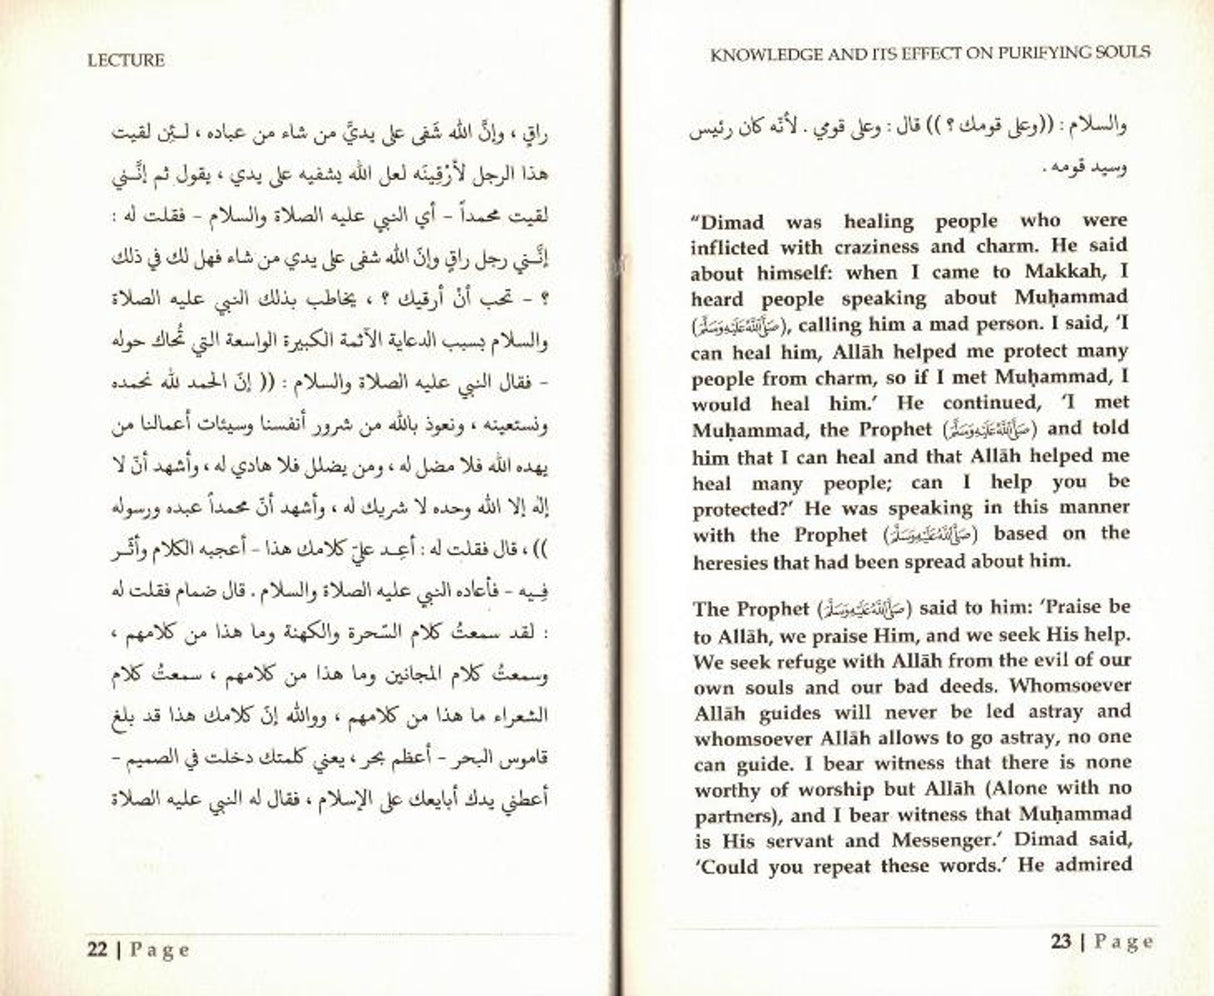 LECTURE
راقٍ ، وإنَّ الله شَفى على يديَّ من شاء من عباده ، لَـئِن لقيت
هذا الرجل لأرْقِينَه لعل الله يشفيه على يدي ، يقول ثم إنَّـني
لقيت محمداً - أي النبي عليه الصلاة والسلام - فقلت له :
إنَّـني رجل راقٍ وإنّ الله شفى على يدي من شاء فهل لك في ذلك
؟ - تحب أنْ أرقيك ؟ ، يخاطب بذلك النبي عليه الصلاة
والسلام بسبب الدعاية الآثمة الكبيرة الواسعة التي تُحاك حوله
- فقال النبي عليه الصلاة والسلام : (( إنّ الحمد لله نحمده
ونستعينه ، ونعوذ بالله من شرور أنفسنا وسيئات أعمالنا من
يهده الله فلا مضل له ، ومن يضلل فلا هادي له ، وأشهد أنّ لا
إله إلا الله وحده لا شريك له ، وأشهد أنّ محمداً عبده ورسوله
)) ، قال فقلت له : أعِـد عليّ كلامك هذا - أعجبه الكلام وأثَّـر
فِـيه - فأعاده النبي عليه الصلاة والسلام . قال ضمام فقلت له
: لقد سمعتُ كلام السّحرة والكهنة وما هذا من كلامهم ،
وسمعتُ كلام المجانين وما هذا من كلامهم ، سمعتُ كلام
الشعراء ما هذا من كلامهم ، ووالله إنّ كلامك هذا قد بلغ
قاموس البحر - أعظم بحر ، يعني كلمتك دخلت في الصميم -
أعطني يدك أبايعك على الإسلام ، فقال له النبي عليه الصلاة
22 | Page
KNOWLEDGE AND ITS EFFECT ON PURIFYING SOULS
والسلام : ((وعلى قومك ؟ )) قال : وعلى قومي . لأنّه كان رئيس
وسيد قومه .
“Dimad was healing people who were
inflicted with craziness and charm. He said
about himself: when I came to Makkah, I
heard people speaking about Muḥammad
(ﷺ), calling him a mad person. I said, ‘I
can heal him, Allāh helped me protect many
people from charm, so if I met Muḥammad, I
would heal him.’ He continued, ‘I met
Muḥammad, the Prophet (ﷺ) and told
him that I can heal and that Allāh helped me
heal many people; can I help you be
protected?’ He was speaking in this manner
with the Prophet (ﷺ) based on the
heresies that had been spread about him.
The Prophet (ﷺ) said to him: ‘Praise be
to Allāh, we praise Him, and we seek His help.
We seek refuge with Allāh from the evil of our
own souls and our bad deeds. Whomsoever
Allāh guides will never be led astray and
whomsoever Allāh allows to go astray, no one
can guide. I bear witness that there is none
worthy of worship but Allāh (Alone with no
partners), and I bear witness that Muḥammad
is His servant and Messenger.’ Dimad said,
‘Could you repeat these words.’ He admired
23 | Page